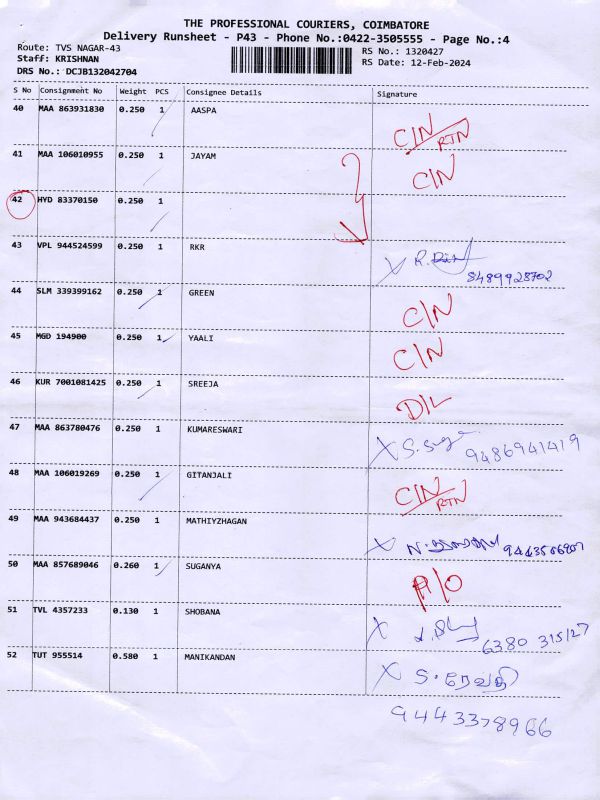 THE PROFESSIONAL COURIERS, COIMBATORE
Delivery Runsheet - P43 - Phone No.:0422-3505555 - Page No.:4
Route: TVS NAGAR-43 RS No.: 1320427
Staff: KRISHNAN RS Date: 12-Feb-2024
DRS No.: DCJB132042704
S No Consignment No Weight PCS Consignee Details Signature
40 MAA 863931830 0.250 1 AASPA C/N RTN
41 MAA 106010955 0.250 1 JAYAM C/N
42 HYD 83370150 0.250 1
43 VPL 944524599 0.250 1 RKR R. 8489928702
44 SLM 339399162 0.250 1 GREEN C/N
45 MGD 194900 0.250 1 YAALI C/N
46 KUR 7001081425 0.250 1 SREEJA D/L
47 MAA 863780476 0.250 1 KUMARESWARI 9486941419
48 MAA 106019269 0.250 1 GITANJALI C/N RTN
49 MAA 943684437 0.250 1 MATHIYZHAGAN
50 MAA 857689046 0.260 1 SUGANYA
51 TVL 4357233 0.130 1 SHOBANA 6380 315127
52 TUT 955514 0.580 1 MANIKANDAN S. ரேவதி
9443378966